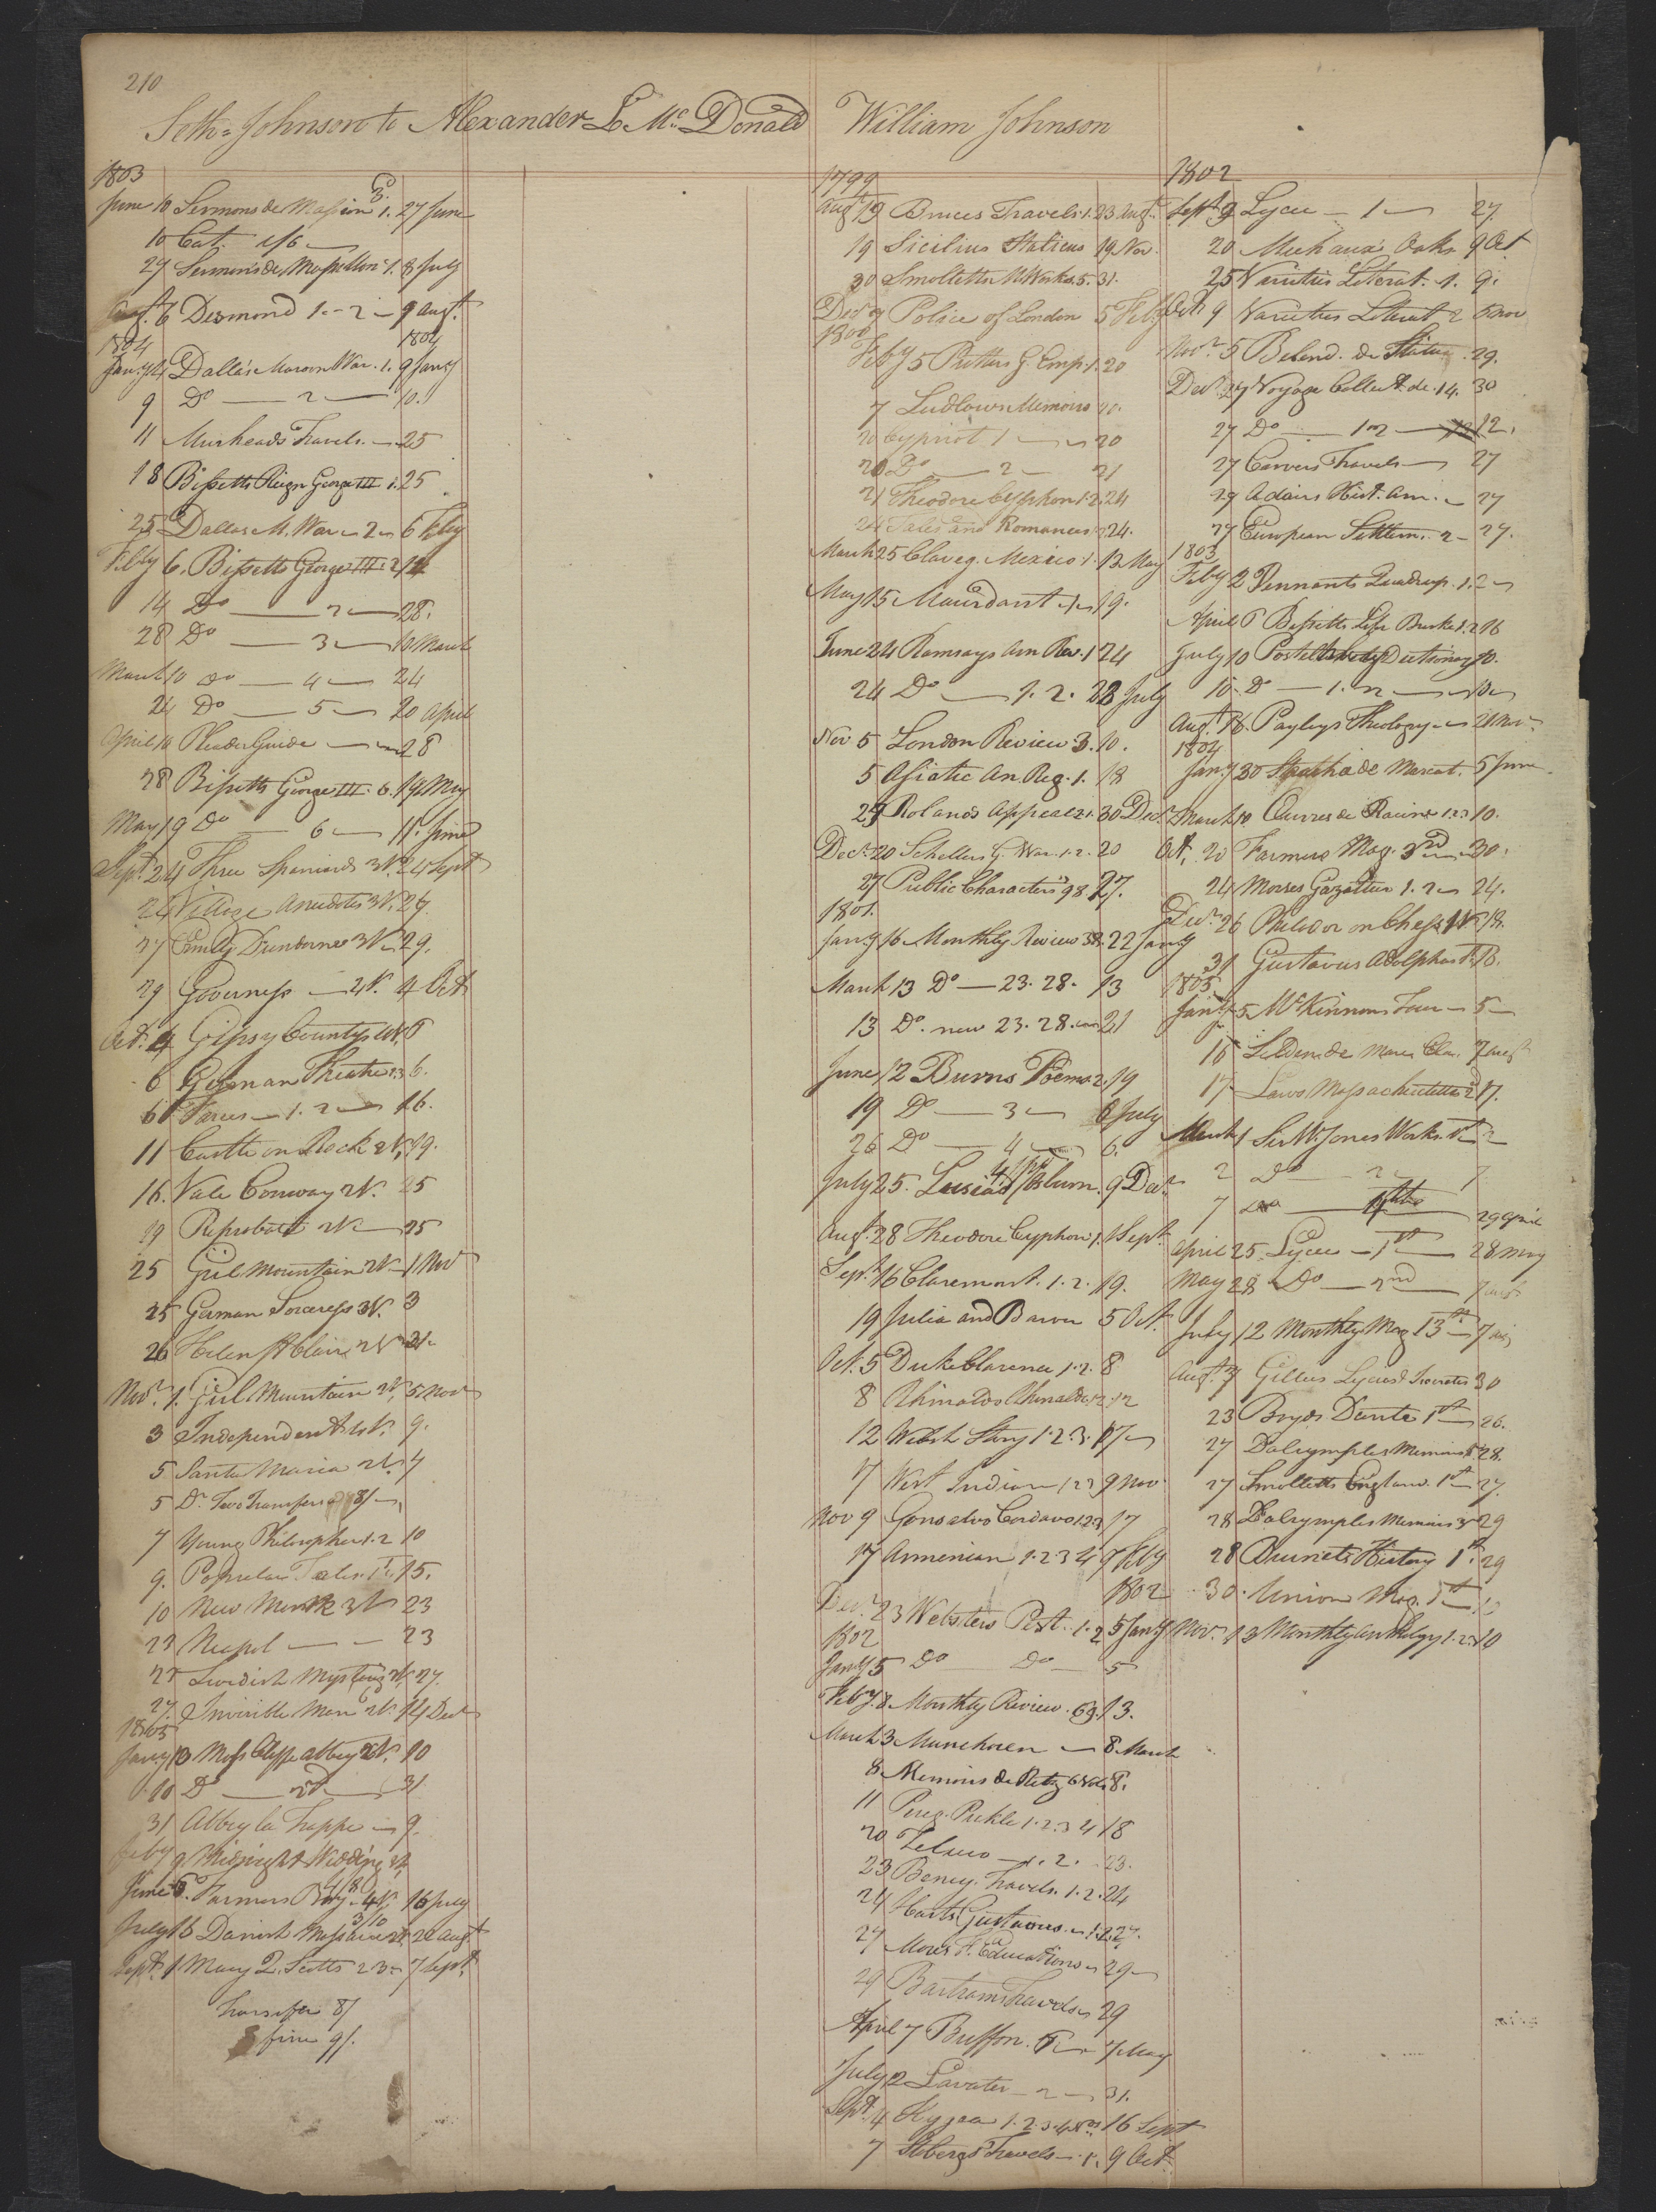 210
Seth Johnson to Alexander L McDonald
1803
June 10 Sermons de Massion 1. 27 June
10 Cat. 1/6
27 Sermons de Massillon 1. 8 July
Augt. 6 Desmond 1. - 2 - 9 Augt.
1804 1804
Jany 4 Dallas Maroon War. 1. 9 Jany
9 Do — 2 — 10.
11 Muirheads Travels. — 25
18 Bissetts Reign George III 1. 25
25 Dallas M. War — 2 — 6 Feby
Feby 6. Bissetts George III. 2 14
14 Do — 2 — 28.
28 Do — 3 — 10 March
March 10 Do — 4 — 24
24 Do — 5 — 20 April
April 10 Pleader Guide — 28
28 Bissetts George III. 6. 19 May
May 19 Do — 6 — 11. June
Sept. 24 Three Spaniards 3V. 24 Sept
24 Village Anecdotes 3V. 27.
27 Emily 3V. 29.
29 Governess — 2V. 4 Oct
Oct. 4 Gipsy Countess 4V. 6
6 German Theatre 6.
6 Farces — 1. 2 — 16.
11 Castle on Rock 2V. 19.
16. Vale Conway 2V. 25
19 Reprobate 2V — 25
25 Girl Mountain 2V — 1 Nov
25 German Sorceress 3V. 3
26 Helen St Clair 2V 31.
Novr. 1. Girl Mountain 2V. 5 Nov
3 Independent 2V. 9.
5 Santa Maria 2V. 7
5 Do Two Transfers 8/—
7 Young Philosopher 1. 2 10
9. Popular Tales. 1. 15.
10 New Monk 3V 23
23 — — 23
23 Swedish Mysteries 2V. 27.
27. Invisible Man 2V. 14 Dec
1805
Jany 10 Moss Cliffe Abbey 2V. 10
10 Do — 31
31 Abbey la Trappe — 9.
Feby 9 Midnight Wedding
June 6. Farmers Boy. 4V. 16 July
July 16 Danish Massacre 2V. 22 Augt
Sept. 1 Mary Q. Scotts 2 3 — 7 Sept.
Transfer 8/
fine 9/.
William Johnson
1799
Augt 19 Bruces Travels. 1. 23 Augt.
19 Sicilius Italicus 19 Nov.
30 Smolletts M Works. 5. 31.
Decr 9 Police of London 5 Feby
1800
Feby 5 Putters G. Emp. 1. 20
7 Ludlows Memoirs 20.
20 Cypriot 1 — 20
20 Do — 2 — 21
21 Theodore Cyphon 1. 2. 24
24 Tales and Romances 24.
March 25 Claveg. Mexico 1. 13 May
May 15 Mourdant — 19.
June 24 Ramsays Am Rev. 1 24
24 Do — 1. 2. 28 July
Nov 5 London Review 3. 10.
5 Asiatic An. Reg. 1. 18
29 Rolands Appeal 1. 30 Dec.
Dec. 20 Schellers G. War. 1. 2. 20
27 Public Characters 98 27.
1801.
Jany 16 Monthly Review 22 Jany
March 13 Do — 23. 28. 13
13 Do. new 23. 28. 21
June 12 Burns Poems. 2. 19
19 Do — 3 — 6 July
26 Do — 4 — 6.
July 25. Lusiad 9 Decr
Augt. 28 Theodore Cyphon 1. 1 Sept.
Sept. 16 Claremont. 1. 2. 19.
19 Julia and Baron 5 Oct.
Oct. 5 Duke Clarence 1. 2. 8
8 Rhinaldo Rhinaldi 1. 2. 12
12 Welsh Story 1. 2. 3. 17 —
17 West Indian 1 2 3 9 Nov
Nov 9 Gonsalvo Cordova 1. 2. 3 17
17 Armenian 1. 2 3 4 9 Feby
1802
Decr. 23 Websters Pest. 1. 2 5 Jany
1802
Jany 5 Do — Do — 5
Feby. 8 Monthly Review. 69. 13.
March 3 Munchosen — 8 March
8 Memoirs de Retz 6 Vols 8.
11 Pereg. Pickle 1. 2. 3 4 18
20 Zeluco — 1. 2. 23.
23 Beney. Travels. 1. 2. 24
24 Harts Gustavus. — 1. 2. 27.
27 Mores F. Education — 29 —
29 Bartrams Travels — 29
April 7 Buffon. 7 May
July 12 Lavater — 2 — 31.
Sept. 4 1. 2. 3. 4 16 Sept
7 Travels — 1. 9 Oct.
1802
Sept 9 Lycee — 1 — 27.
20 Michaux's Oaks 9 Oct
25 Varieties Literat. 1. 9.
Oct. 9 Varieties Literat 2 5 Nov
Novr. 5 Belend. de Statu 29.
Decr. 27 Voyage Collect. de. 14. 30
27 Do — 1 2 — 12.
27 Carvers Travels — 27
29 Adairs Hist. Am. — 27
27 European Settlem. 2 — 27.
1803
Feby 2 Pennants Quadrup. 1. 2 —
April 6 Bissetts Life Burke 1. 2 16
July 10 Postlethwaits Dictionary 10.
10. Do — 1. 2 — 10
Augt 16. Payleys Theology — 21 Nov
1804
Jany 30 de Mercat. 5 June
March 10 Œuvres de Racine 1. 2 3 10.
Oct. 20 Farmers Mag. 3rd — 30.
24 Morses Gazetteer 1. 2 — 24.
Decr. 26 Philidor on Chess 1V. 18.
31 Gustavus Adolphus 1. 18.
1805
Jany 5 McKinnons Tour — 5 —
16 Selden de Mare Clau. 7 Augt
17 Laws Massachusetts 2 17.
March 1 Sir W. Jones Works. 1st — 2
2 Do — 2 — 7
7 Do — 29 April
April 25. Lycee — 1st — 28 May
May 28 Do — 2nd — 7 Augt
July 12 Monthly Mag 13th — 7 Aug
Augt. 7 Gillies Lycias & Isocrates 30
23 Boyds Dante 1st — 26.
27 Dalrymples Memoirs 28.
27 Smolletts England. 1st — 27.
28 Dalrymples Memoirs 3 29
28 Burnets History 1st. 29
30. Union Mag. 1st — 10
Nov. 13 Monthly Anthology 1. 2. 10